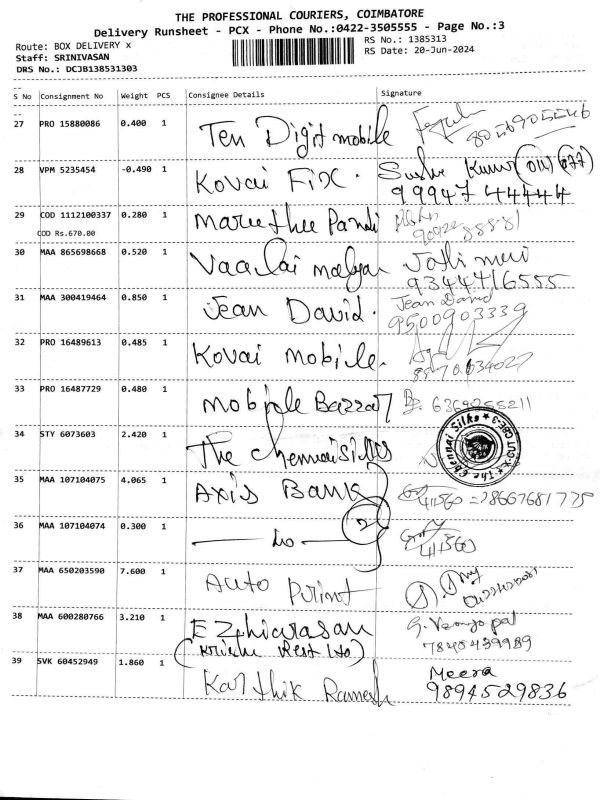 THE PROFESSIONAL COURIERS, COIMBATORE
Delivery Runsheet - PCX - Phone No.:0422-3505555 - Page No.:3
Route: BOX DELIVERY x RS No.: 1385313
Staff: SRINIVASAN RS Date: 20-Jun-2024
DRS No.: DCJB138531303
S No Consignment No Weight PCS Consignee Details Signature
27 PRO 15880086 0.400 1 Ten Digit mobile
28 VPM 5235454 -0.490 1 Kovai Fix.
99947 44444
29 COD 1112100337 0.280 1 Maruthu Pandi
COD Rs.670.00
30 MAA 865698668 0.520 1 Vaalai
9344416555
31 MAA 300419464 0.850 1 Jean David. Jean David
9500903339
32 PRO 16489613 0.485 1 Kovai mobile.
33 PRO 16487729 0.480 1 Mobile Bazzar 6369255211
34 STY 6073603 2.420 1 The Chennai Silks The Chennai Silks * CBE-3
35 MAA 107104075 4.065 1 Axis Bank 41560
36 MAA 107104074 0.300 1 2 41560
37 MAA 650203590 7.600 1 Auto Print
38 MAA 600280766 3.210 1 Ezhiarasan G. Venugopal
7845439989
39 SVK 60452949 1.860 1 Karthik Ramesh Meera
9894529836